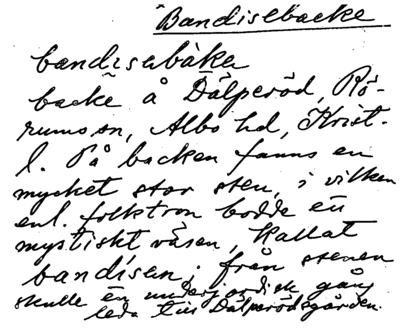 Bandisebacke
bandisabàka
backe å Dälperöd, Rö-
rums sn, Albo hd, Krist.
l. På backen fanns en
mycket stor sten, i vilken
enl. folktron bodde ett
mystiskt väsen, kallat
bandisen; från stenen
skulle en underjordisk gång
leda till Dälperödsgården.